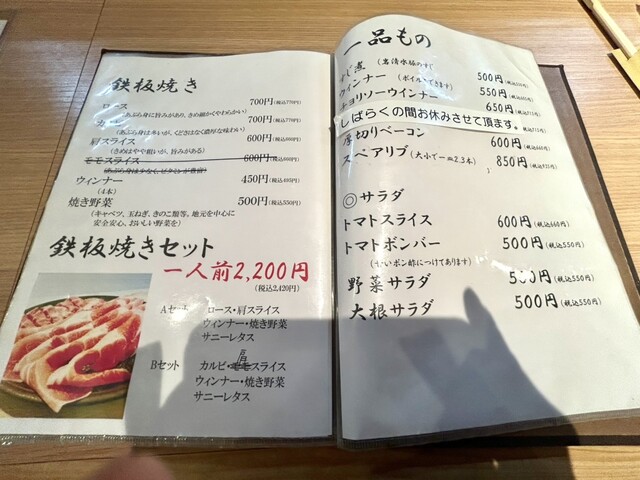 鉄板焼き
ロース 700円(税込770円)
(あぶら身に旨みがあり、きめ細かくやわらかい)
カルビ 700円(税込770円)
(あぶら身は多いが、くどさはなく濃厚な味わい)
肩スライス 600円(税込660円)
(きめはやや粗いが、旨みがある)
モモスライス 600円(税込660円)
ウィンナー 450円(税込495円)
(4本)
焼き野菜 500円(税込550円)
(キャベツ、玉ねぎ、きのこ類等。地元を中心に
安全安心、おいしい野菜を)
鉄板焼きセット
一人前2,200円
(税込2,420円)
Aセット ロース・肩スライス
ウィンナー・焼き野菜
サニーレタス
Bセット カルビ・肩モモスライス
ウィンナー・焼き野菜
サニーレタス
一品もの
すじ煮 500円
ウィンナー (ボイルもできます) 550円
チョリソーウインナー 650円
しばらくの間お休みさせて頂ます。
厚切りベーコン 600円(税込660円)
スペアリブ (大小で一皿2.3本) 850円
◎サラダ
トマトスライス 600円(税込660円)
トマトボンバー 500円(税込550円)
野菜サラダ 500円(税込550円)
大根サラダ 500円(税込550円)